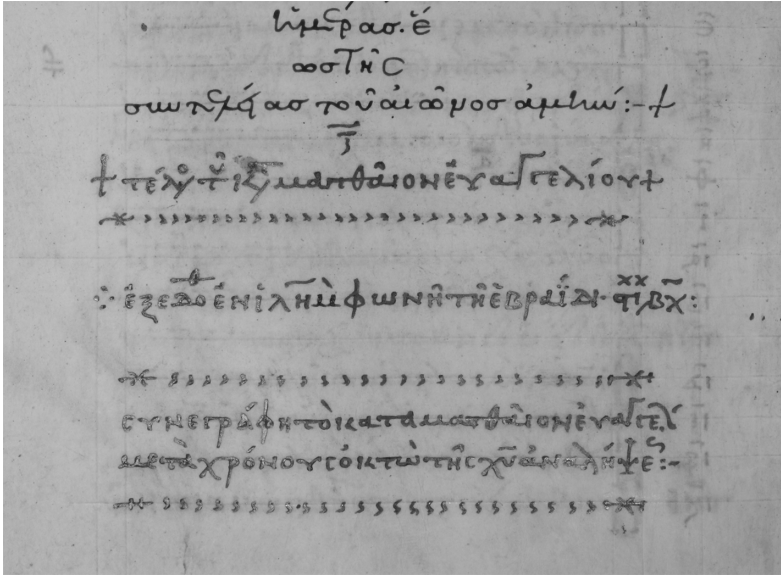 ἡμέρασ. ἕ
ωσ τῆς
συντελείασ τοῦ αἰῶνοσ ἀμήν:-+
+ τέλο τοῦ ματθαῖον ἐυαγγελίου+
ἐξεδόθ ἐν ἱλὴμ φωνῆ τῆ ἑβραΐδι ͵βχ:
συνεγράφη τὸ κατὰ ματθαῖον ἐυαγγελ
μετὰ χρόνους ὀκτὼ τῆς χυ ἀναλήψε:-